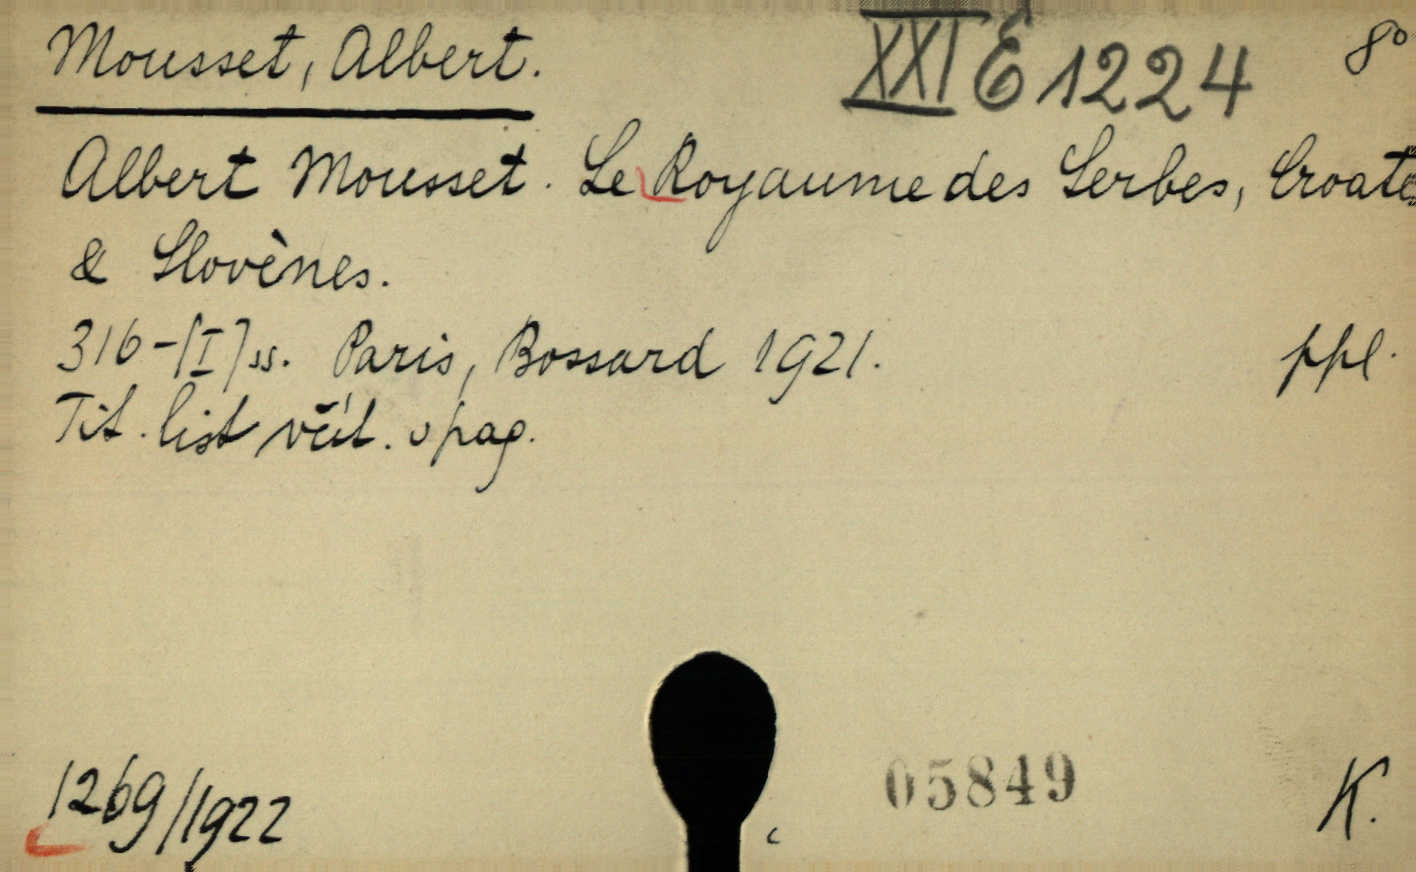 Mousset, Albert.
XXI E 1224
8°
Albert Mousset. Le Royaume des Serbes, Croates
& Slovènes.
316-[I] ss. Paris, Bossard 1921.
ppl.
Tit. list včít. v pag.
1269/1922
05849
K.